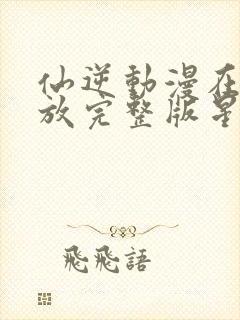 仙逆動漫在
放完整版星
飛飛語